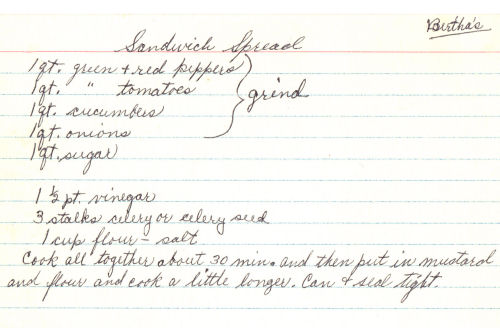 Bertha's
Sandwich Spread
1 qt. green + red peppers
1 qt. " tomatoes
grind
1 qt. cucumbers
1 qt. onions
1 qt. sugar
1 1/2 pt. vinegar
3 stalks celery or celery seed
1 cup flour - salt
Cook all together about 30 min. and then put in mustard
and flour and cook a little longer. Can + seal tight.